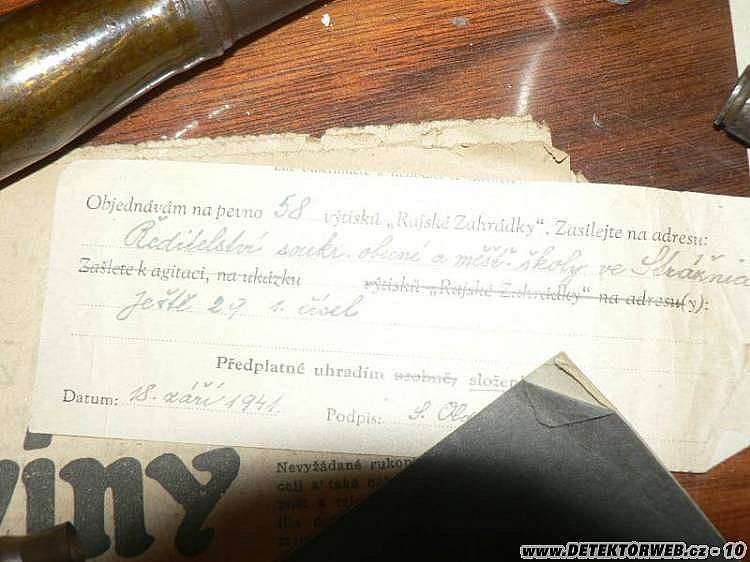 Objednávám na pevno 58 výtisků „Rajské Zahrádky“. Zasílejte na adresu:
Ředitelství soukr. obecné a měšť. školy ve Strážnici
Zašlete k agitaci, na ukázku výtisků „Rajské Zahrádky“ na adresu(y):
Ještě 29 1. čísel
Předplatné uhradím osobně, složen
Datum: 18. září 1941. Podpis: S.
Nevyžádané rukop
viny
www.DETEKTORWEB.cz - 10